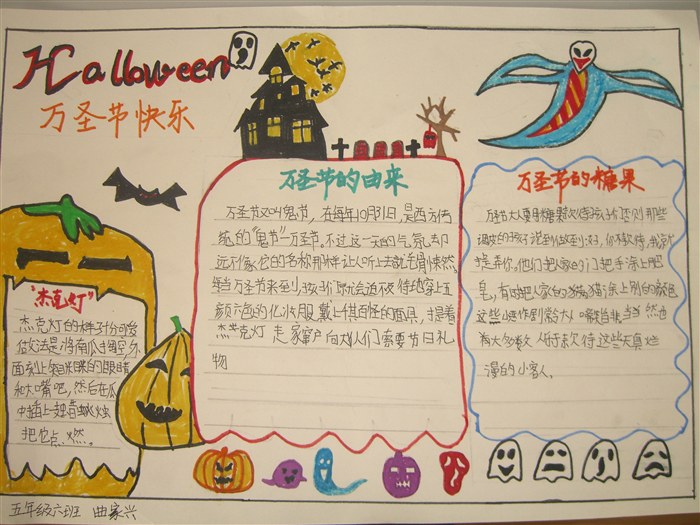 Halloween
万圣节快乐
万圣节的由来
万圣节又叫鬼节,在每年10月31日,是西方传
统的"鬼节"万圣节,不过这一天的气氛却
远不像它的名称那样让人听上去就毛骨悚然。
每当万圣节来到,孩子们都会迫不及待地穿上五
颜六色的化妆服,戴上千奇百怪的面具,提着
杰克灯走家窜户向大人们索要节日礼
物
万圣节的糖果
万圣节大人要用糖果款待孩子们否则那些
调皮的孩子说到做到;好,你不款待,我就
捉弄你。他们把人家的门把手涂上肥
皂,有时把人家的猫涂上别的颜色
这些小恶作剧常令大人啼笑皆非当然也
有大多数人乐于款待这些天真烂
漫的小客人。
"杰克灯"
杰克灯的样子十分可爱
做法是将南瓜掏空外
面刻上笑眯眯的眼睛
和大嘴吧,然后在瓜
中插上一支蜡烛
把它点燃。
五年级六班 曲家兴